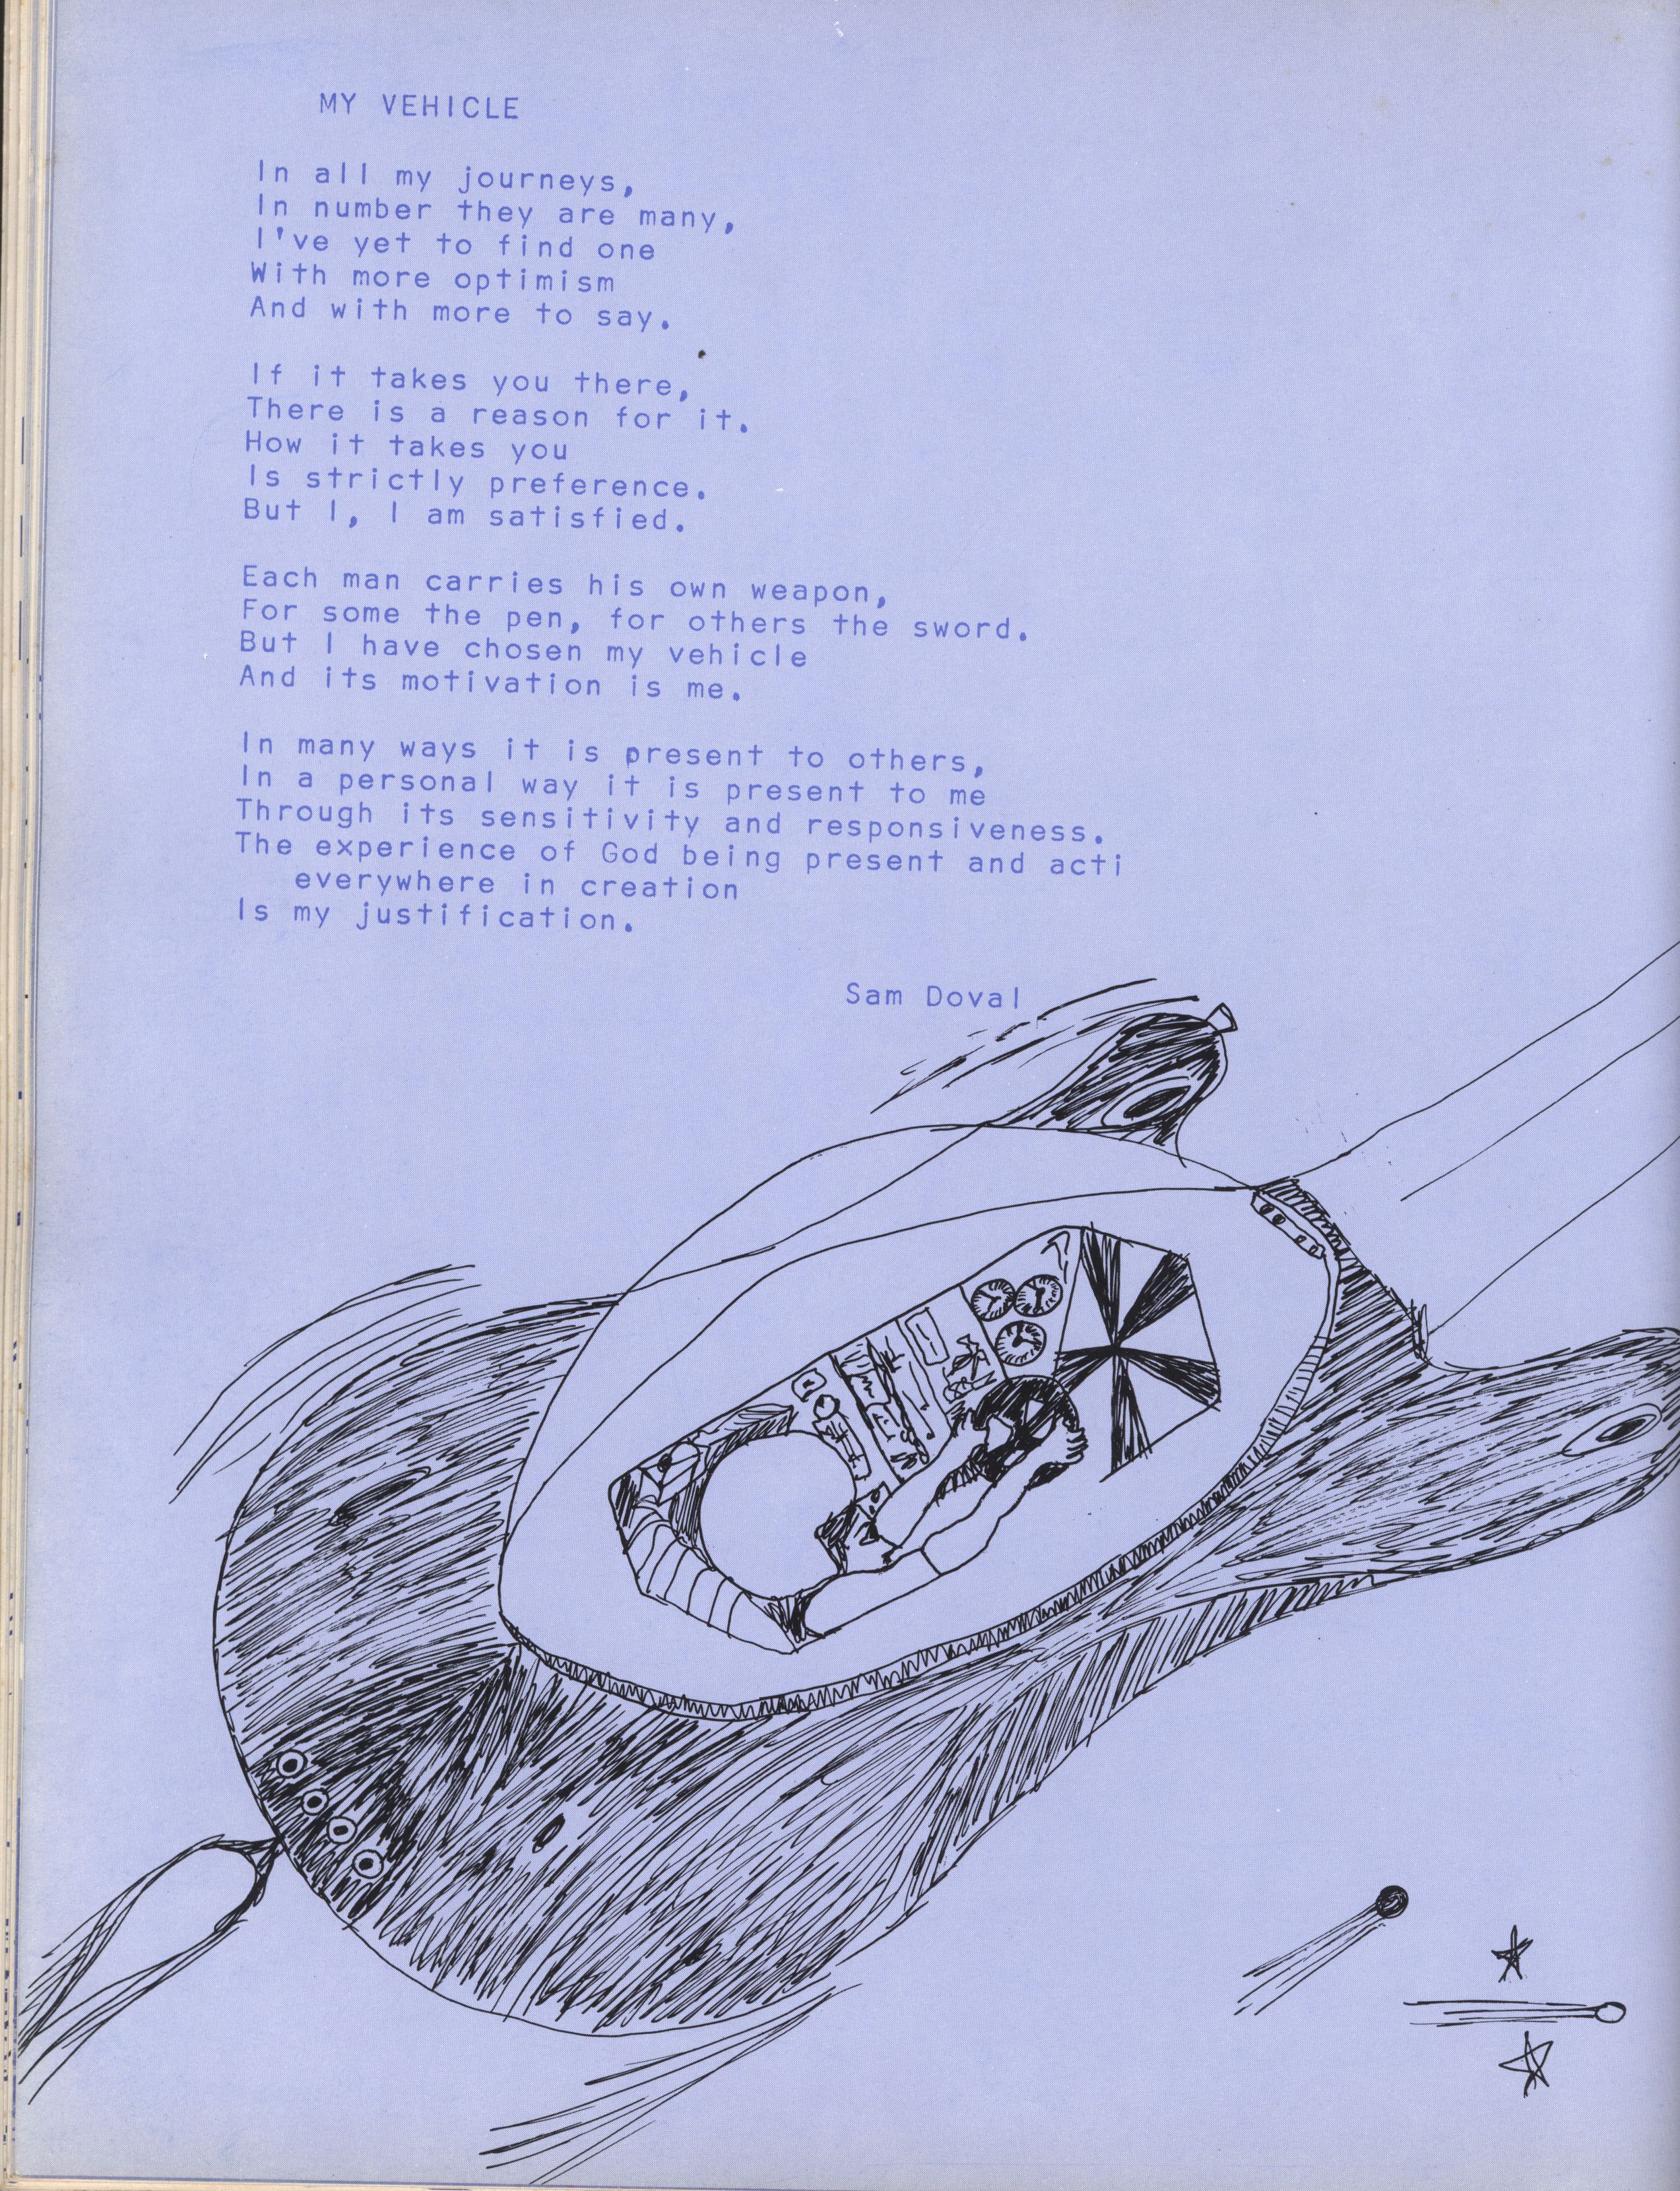 MY VEHICLE
In all my journeys,
In number they are many,
I've yet to find one
With more optimism
And with more to say.
If it takes you there,
There is a reason for it.
How it takes you
Is strictly preference.
But I, I am satisfied.
Each man carries his own weapon,
For some the pen, for others the sword.
But I have chosen my vehicle
And its motivation is me.
In many ways it is present to others,
In a personal way it is present to me
Through its sensitivity and responsiveness.
The experience of God being present and acti
everywhere in creation
Is my justification.
Sam Doval